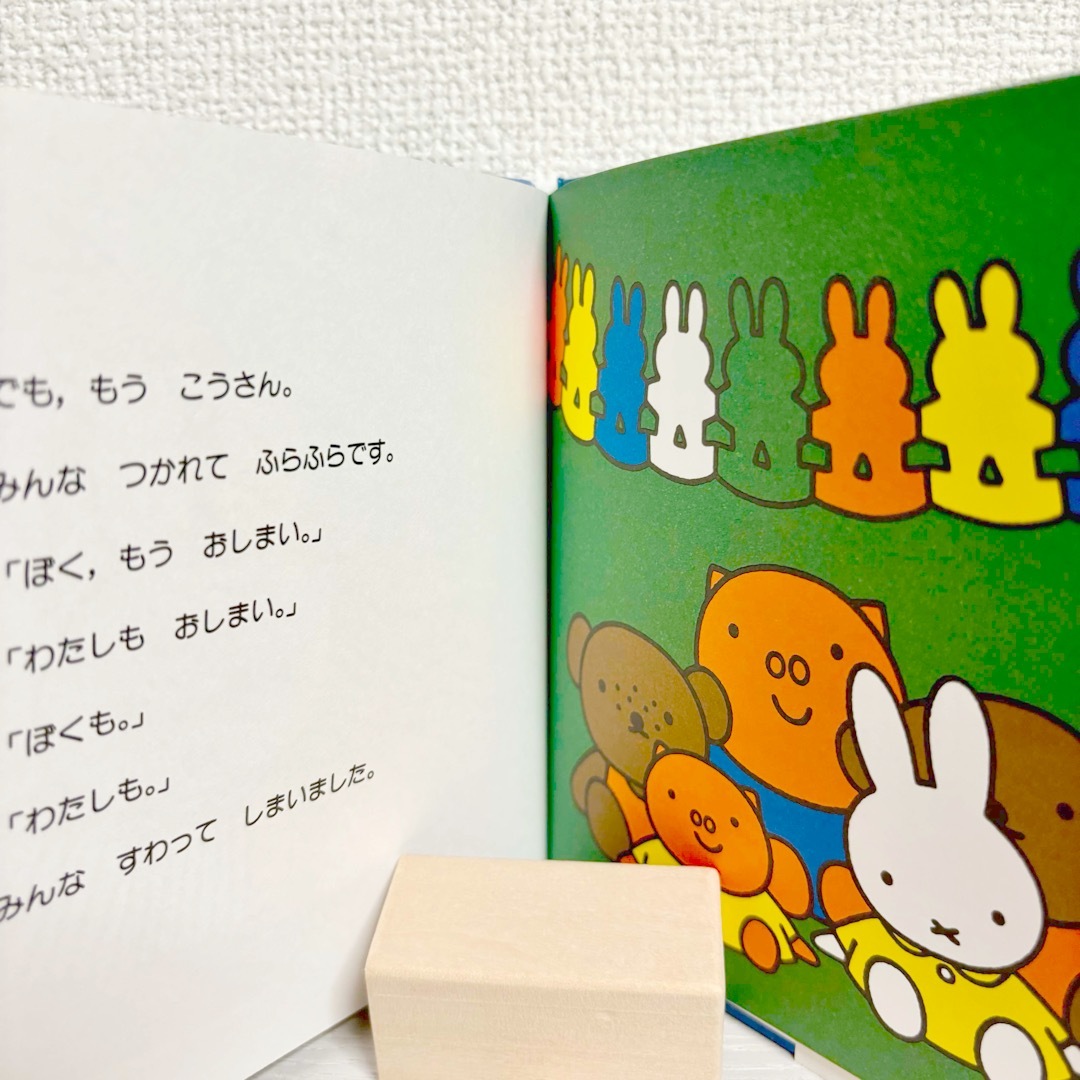 でも，もう　こうさん。
みんな　つかれて　ふらふらです。
「ぼく，もう　おしまい。」
「わたしも　おしまい。」
「ぼくも。」
「わたしも。」
みんな　すわって　しまいました。